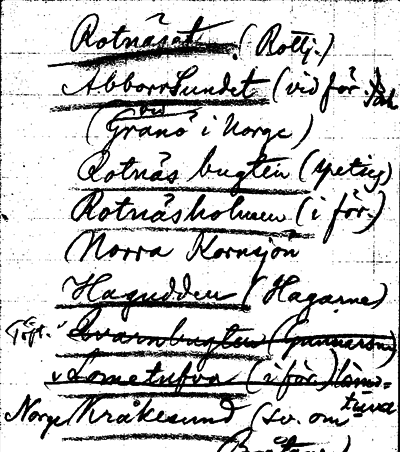 Rotnäset (Rottj.)
Abborrsundet (vid för.
(vid Granö i Norge)
Rotnäs bugten (spetsig)
Rotnäsholmen (i för.)
Norra Kornsjön
Hagudden (Hagarne)
Kvarnbugten (Gunnarsn)
v Lometufva (i för.) lòm-
tuva
Norge Kråkesund (sv. om